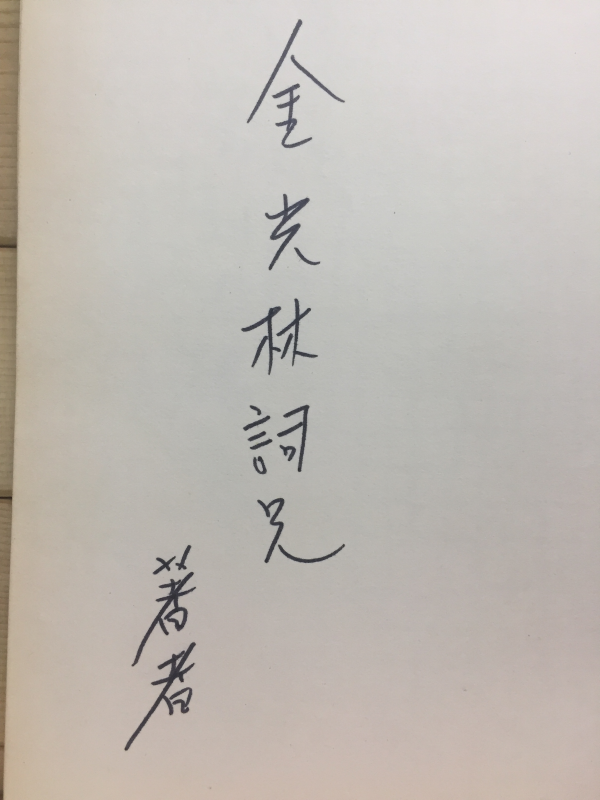 金光林詞兄
著者